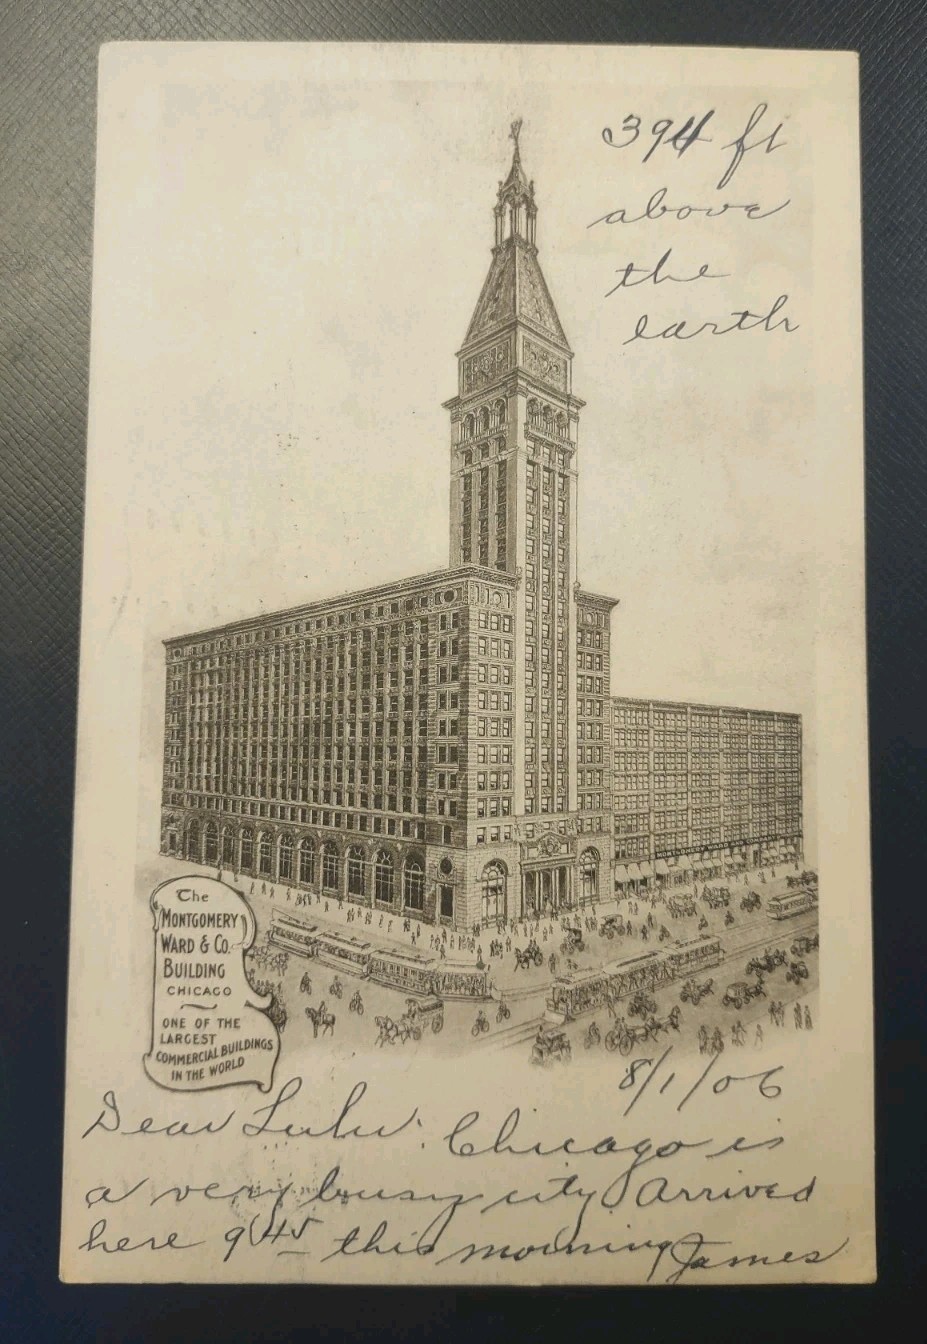 394 ft
above
the
earth
MONTGOMERY WARD
The
MONTGOMERY
WARD & CO.
BUILDING
CHICAGO
ONE OF THE
LARGEST
COMMERCIAL BUILDINGS
IN THE WORLD
8/1/06
Dear Lulu: Chicago is
a very busy city Arrived
here 9 45 this morning James